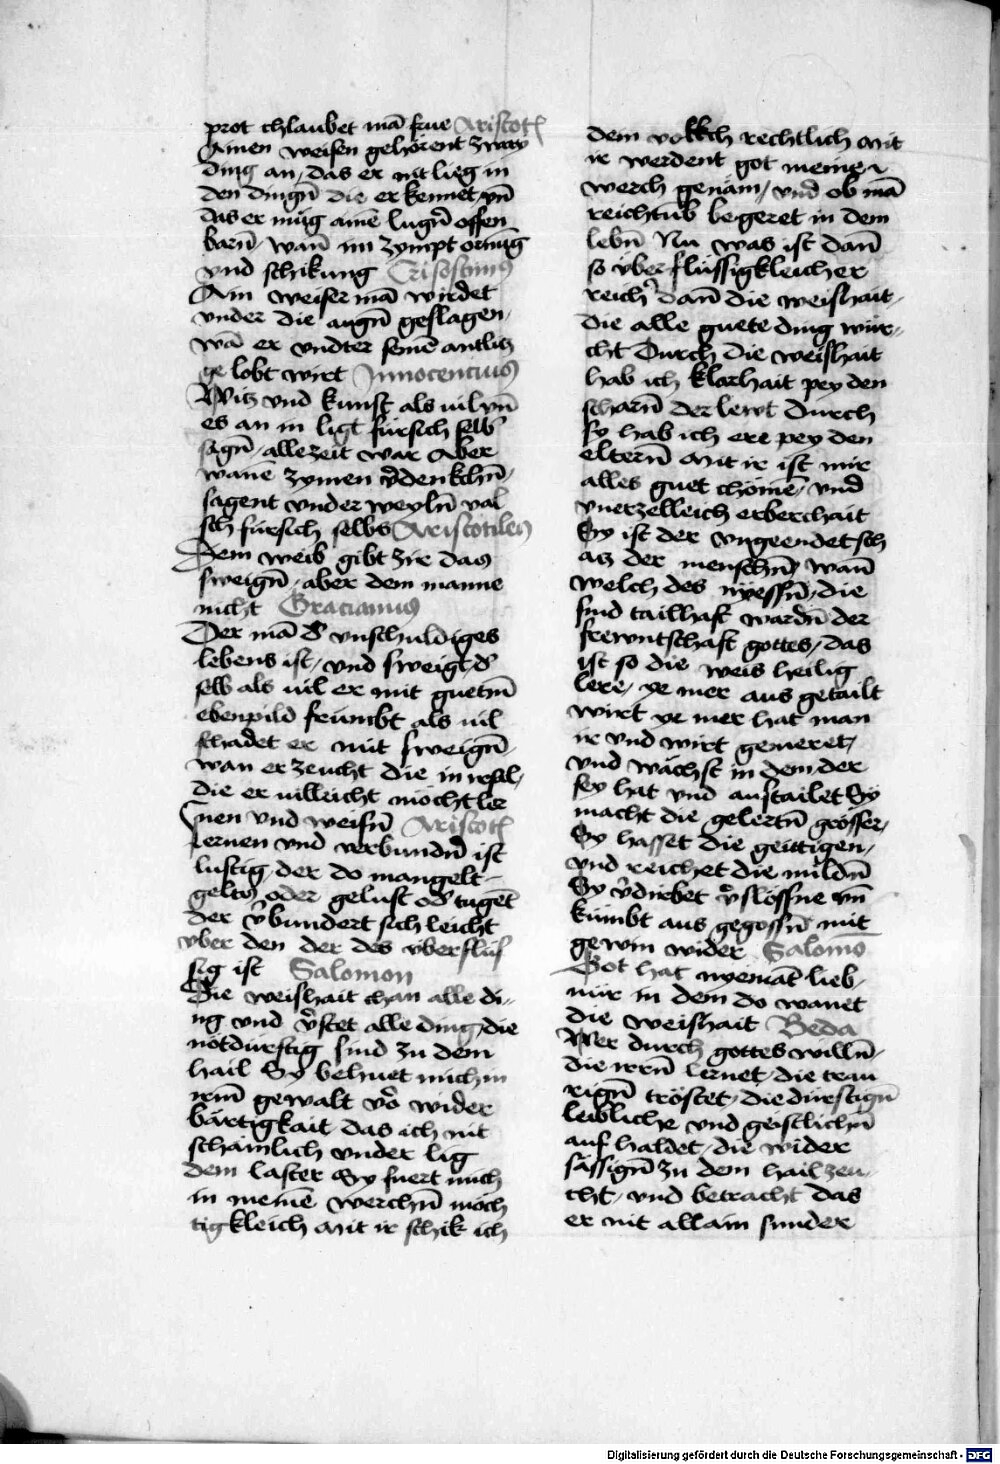 prot chlaubet mā frue Aristotl
Ainen weisen gehörent zway
ding an / das er nit lieg in
den dingn̄ die er kennet / vn̄
das er müg aine lugn̄ offen
barn̄ / wan̄ im zympt ornūg
vnd schikung Crisostimus
Ain weiser mā wirdet
vnder die augn̄ geslagen /
wā er vndter seinē antlitz
ge lobt wirt Innocencius
Witz vnd kunst als uil vn̄
es an in ligt fürsich selb
sagn̄ / allezeit war Aber
sagent vnder weyln̄ val
sch fürsich selbs Aristotiles
Dem weib gibt zir das
sweign̄ / aber dem manne
nicht Gracianus
Der mā d' vnschuldiges
lebens ist / vnd sweigt / d'
selb als uil er mit guetm̄
ebenpild frümbt als uil
schadet er mit sweign̄ /
wan er zeucht die in
die er uilleicht möcht ler
nen vnd weisn̄ Aristotl
Lernen vnd verbundn̄ ist
lustig / der do mangelt
geltz oder gelust od' tugēt
der v'bundert sich leicht
vber den der des vberflüs
sig ist Salomon
Die weishait chan alle di /
ng vnd v'stet alle ding / die
nötdürftig sind zu dem
hail Sy behuet mich in
irm̄ gewalt vō wider
bärtigkait das ich nit
schamlich vnder lig
dem laster Sy fuert mich
in meinē werchn̄ möch
tigkleich Mit ir schik ich
dem volkch rechtlich Mit
ir werdent got meine
werch genäm / vnd ob mā
reichtūb begeret in dem
lebn̄ Nu was ist dan̄
so überflüssigkleicher
reich' dan̄ die weishait /
die alle guete ding wür /
cht Durch die weishait
hab ich klarhait pey den
scharn̄ der lewt Durch
sy hab ich ere pey den
eltern̄ Mit ir ist mir
alles guet chömē / vnd
vnerzelleich erberchait
Sy ist der vngeendet sch
atz der menschn̄ / wan̄
welch des nyessn̄ / die
sind tailhaft wardn̄ der
frewntschaft gottes / das
ist so die weis heilig
lere / ye mer aus getailt
wirt ye mer hat man
ir vnd wirt gemeret /
vnd wächst in dem / der
sey hat vnd austailet Sy
macht die gelertn̄ grösser /
Sy hasset die geittigen /
vnd reichet die mildn̄
Sy v'dirbet v'slossne vn̄
kümbt aus gegossn̄ mit
gewin wider Salomō
Got hat nyemāt lieb /
nür in dem do wanet
die weishait Beda
Wer durch gottes willn̄ /
die irrn̄ lernet / die trau
rign̄ tröstet / die dürstign̄
leibliche vnd geistlichn̄
auf haldet / die wider
sässign̄ zu dem hail zeu
cht / vnd betracht das
er nit allain sunder
Digitalisierung gefördert durch die Deutsche Forschungsgemeinschaft - DFG